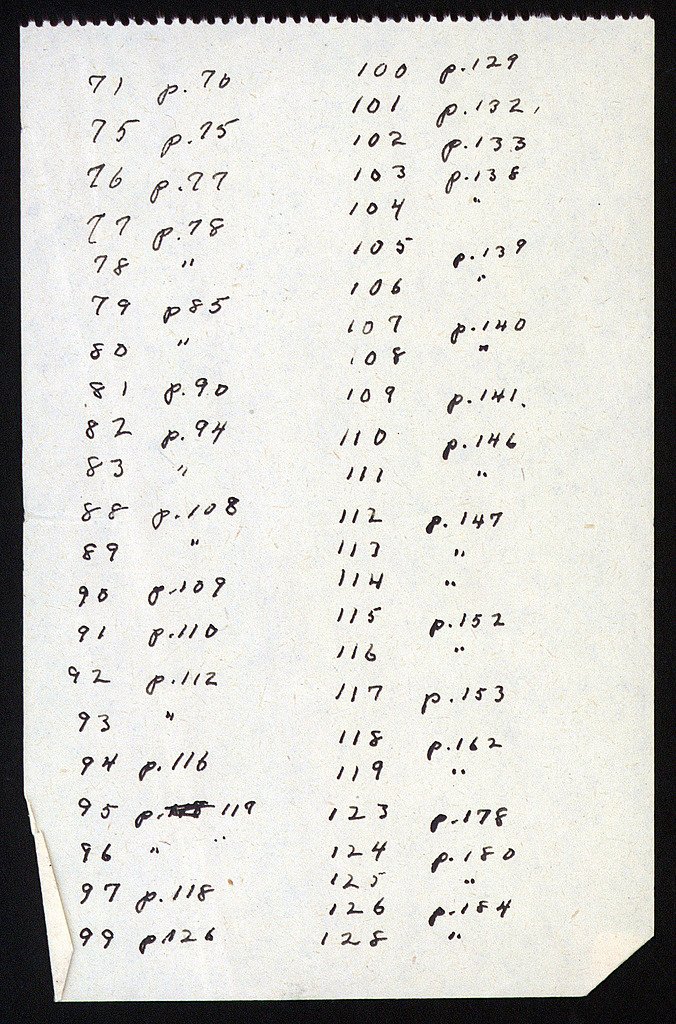 71 p. 76
75 p. 75
76 p. 77
77 p. 78
78 "
79 p 85
80 "
81 p. 90
82 p. 94
83 "
88 p. 108
89 "
90 p. 109
91 p. 110
92 p. 112
93 "
94 p. 116
95 p. 119
96 " "
97 p. 118
99 p 126
100 p. 129
101 p. 132,
102 p. 133
103 p. 138
104 "
105 p. 139
106 "
107 p. 140
108 "
109 p. 141.
110 p. 146
111 "
112 p. 147
113 "
114 "
115 p. 152
116 "
117 p. 153
118 p. 162
119 "
123 p. 178
124 p. 180
125 "
126 p. 184
128 "